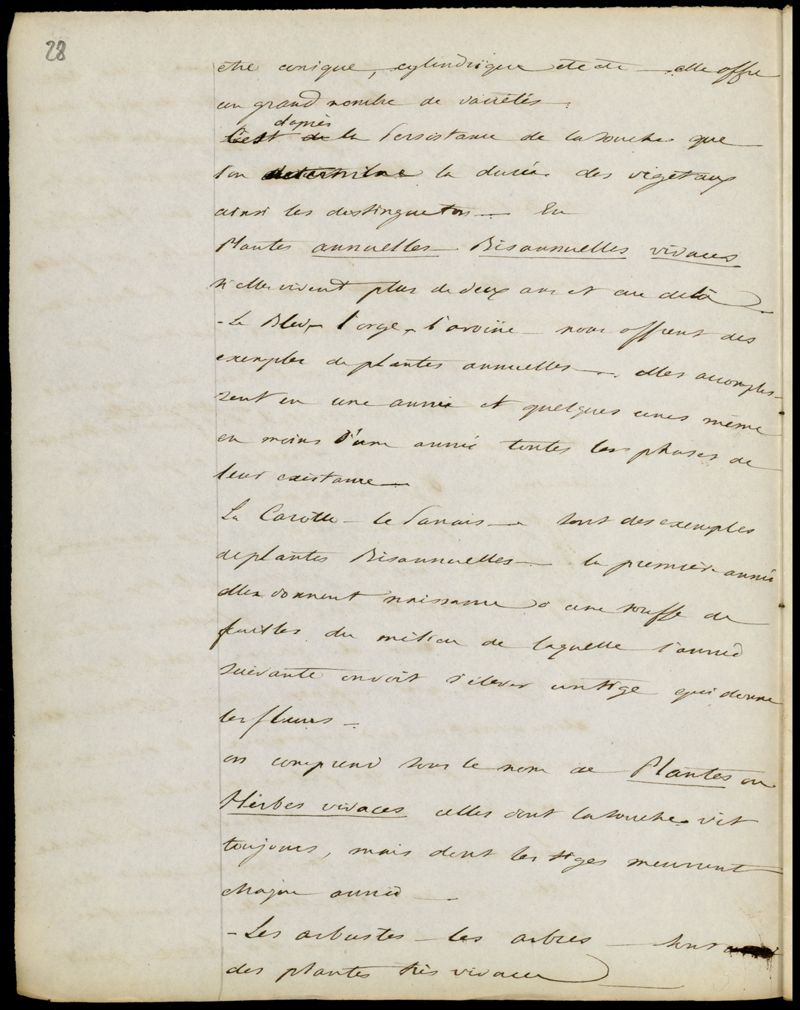 28
être conique, cylindrique etc etc — elle offre
un grand nombre de variétés.
d'après
C'est de la Persistance de la souche que
l'on détermine la durée des végétaux
ainsi les distingue ton — En
Plantes annuelles Bisannuelles vivaces
si elle vivent plus de deux ans et au delà
- Le Bled, l'orge, l'avoine nous offrent des
exemples de plantes annuelles — elles accomplis-
sent en une année et quelques unes même
en moins d'une année toutes les phases de
leur existance —
La Carotte - le Panais — sont des exemples
de plantes Bisannuelles — la première année
elles donnent naissance a une touffe de
feuilles du milieu de laquelle l'année
suivante on voit s'élever un tige qui donne
les fleurs —
on comprend sous le nom de Plantes ou
Herbes vivaces celles dont la souche vit
toujours, mais dont les tiges meurent
chaque année —
- Les arbustes - les arbres — sont
des plantes très vivaces